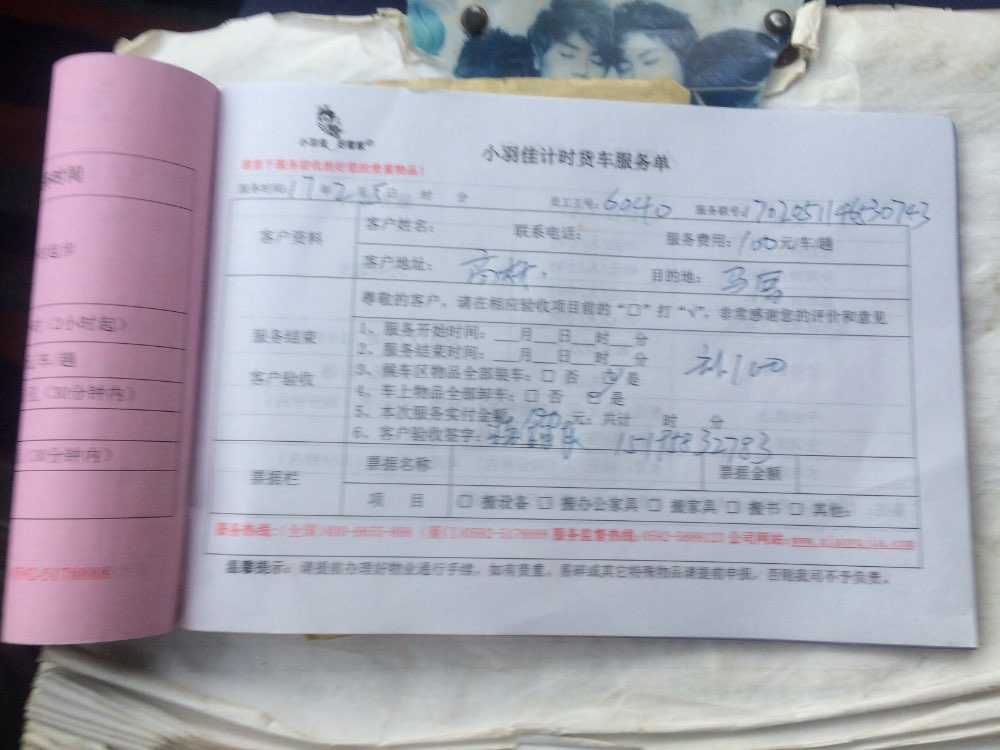 小羽佳计时货车服务单
服务时间:17年2月5日 时 分 员工工号:6040 服务联号:
客户资料 客户姓名: 联系电话: 服务费用:100元/车/趟
客户地址: 目的地:
尊敬的客户，请在相应验收项目前的“□”打“√”，非常感谢您的评价和意见
服务结束
客户验收
1、服务开始时间:__月__日__时__分
2、服务结束时间:__月__日__时__分 补100
3、候车区物品全部装车:□ 否 ☑是
4、车上物品全部卸车:□ 否 ☑是
5、本次服务实付金额 元; 共计 时 分
6、客户验收签字: 15195832783
票据栏 票据名称 票据金额
项 目 □ 搬设备 □ 搬办公家具 □ 搬家具 □ 搬书 □ 其他:
服务热线:(全国)400-6655-886 (厦门)0592-5178888 服务监督热线: 公司网站:
温馨提示:请提前办理好物业通行手续，如有贵重、易碎或其它特殊物品请提前申报，否则我司不予负责。
时间
(2小时起)
车/趟
(30分钟内)
(30分钟内)
0592-5178888